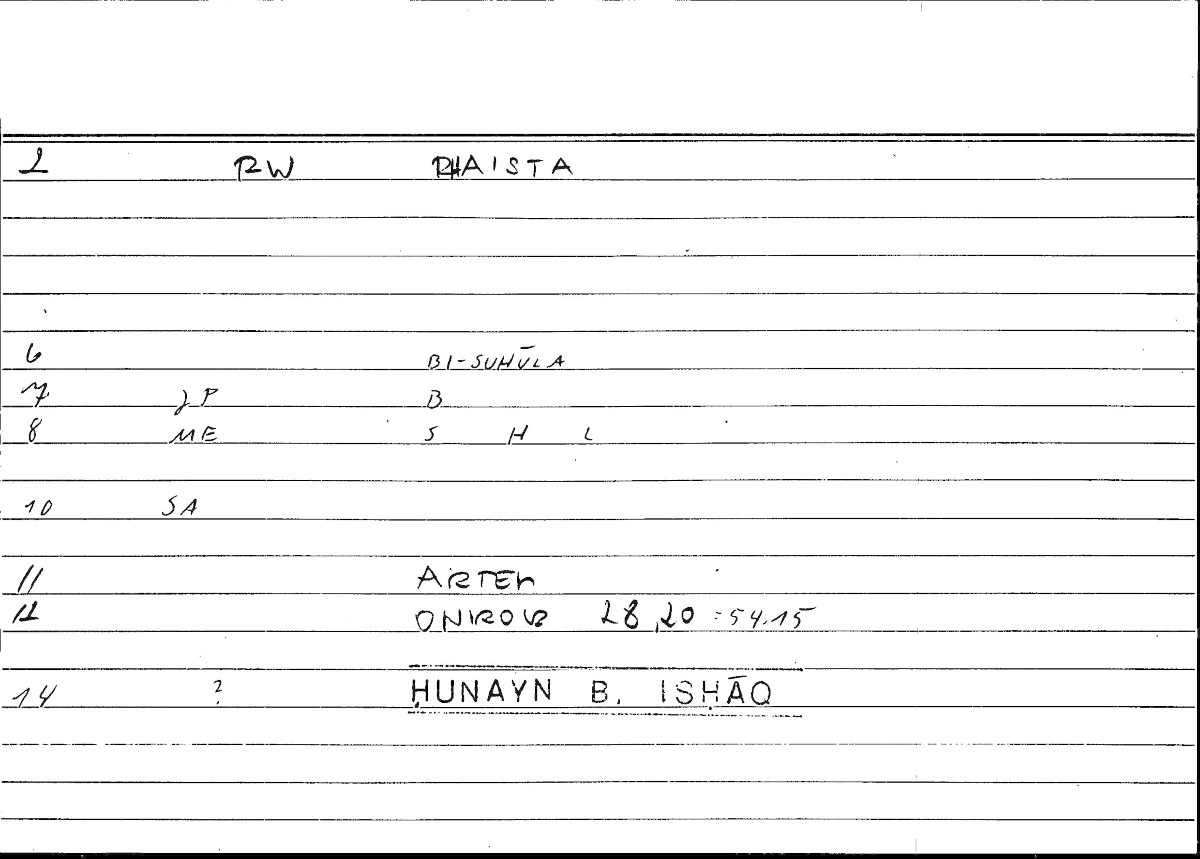 2 RW RHAISTA
6 BI-SUHŪLA
7 JP B
8 ME S H L
10 SA
11 ARTEM
12 ONIROCR 28,20 =54.15
14 ? ḤUNAYN B. ISḤĀQ